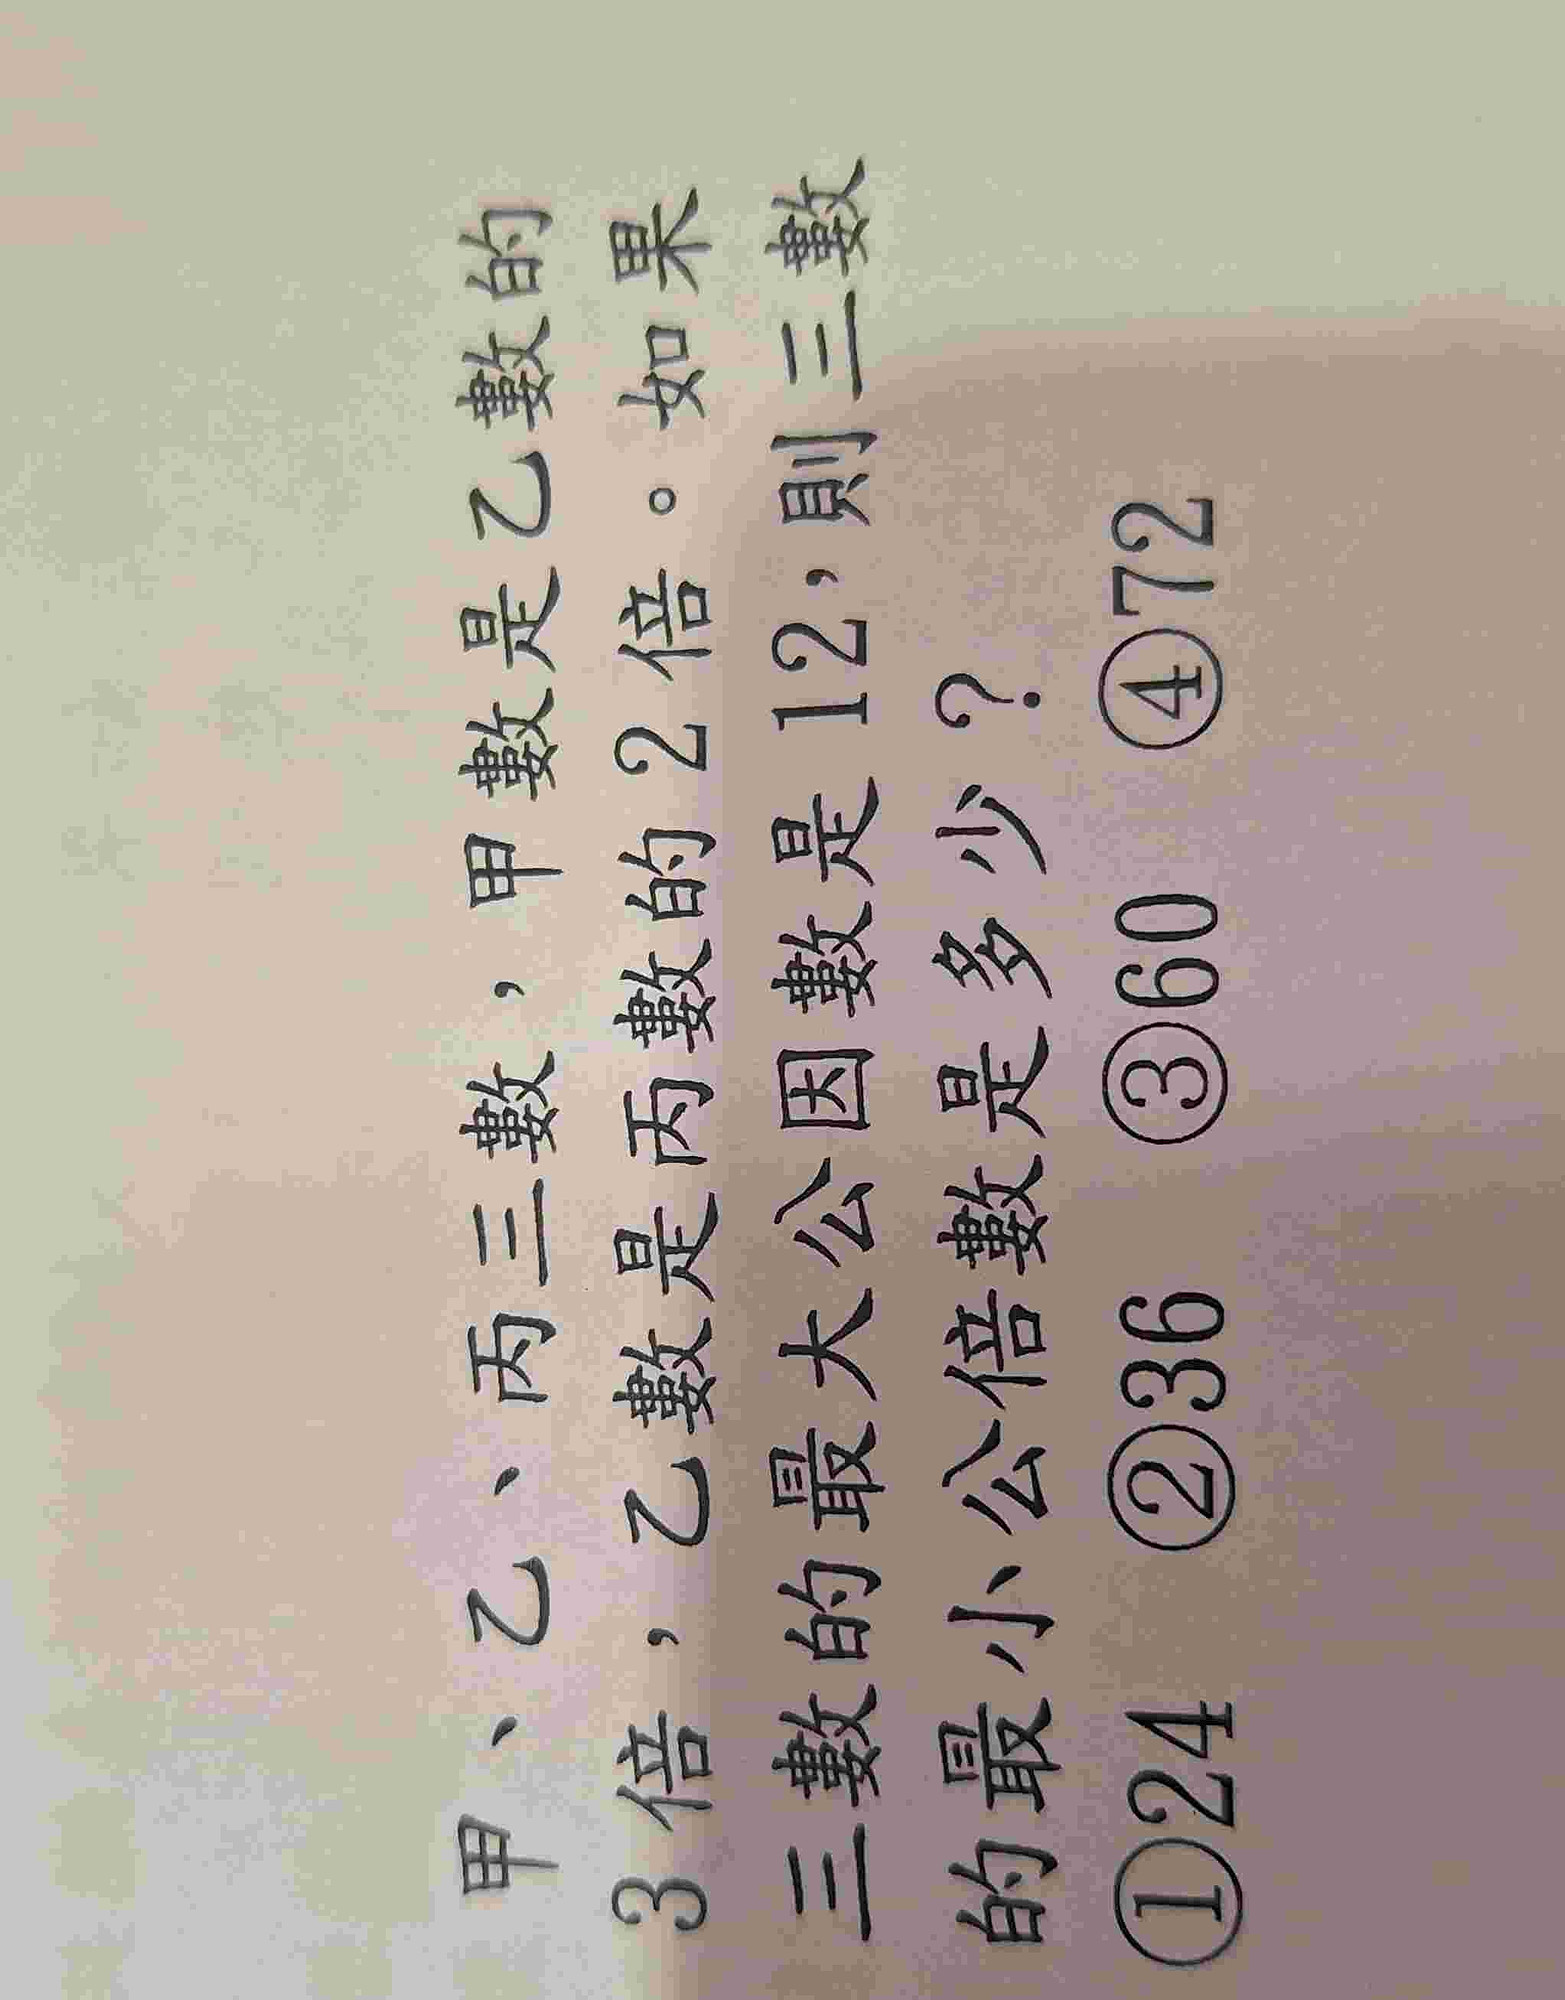 甲、乙、丙三數，甲數是乙數的
3倍，乙數是丙數的2倍。如果
三數的最大公因數是12，則三數
的最小公倍數是多少？
①24 ②36 ③60 ④72